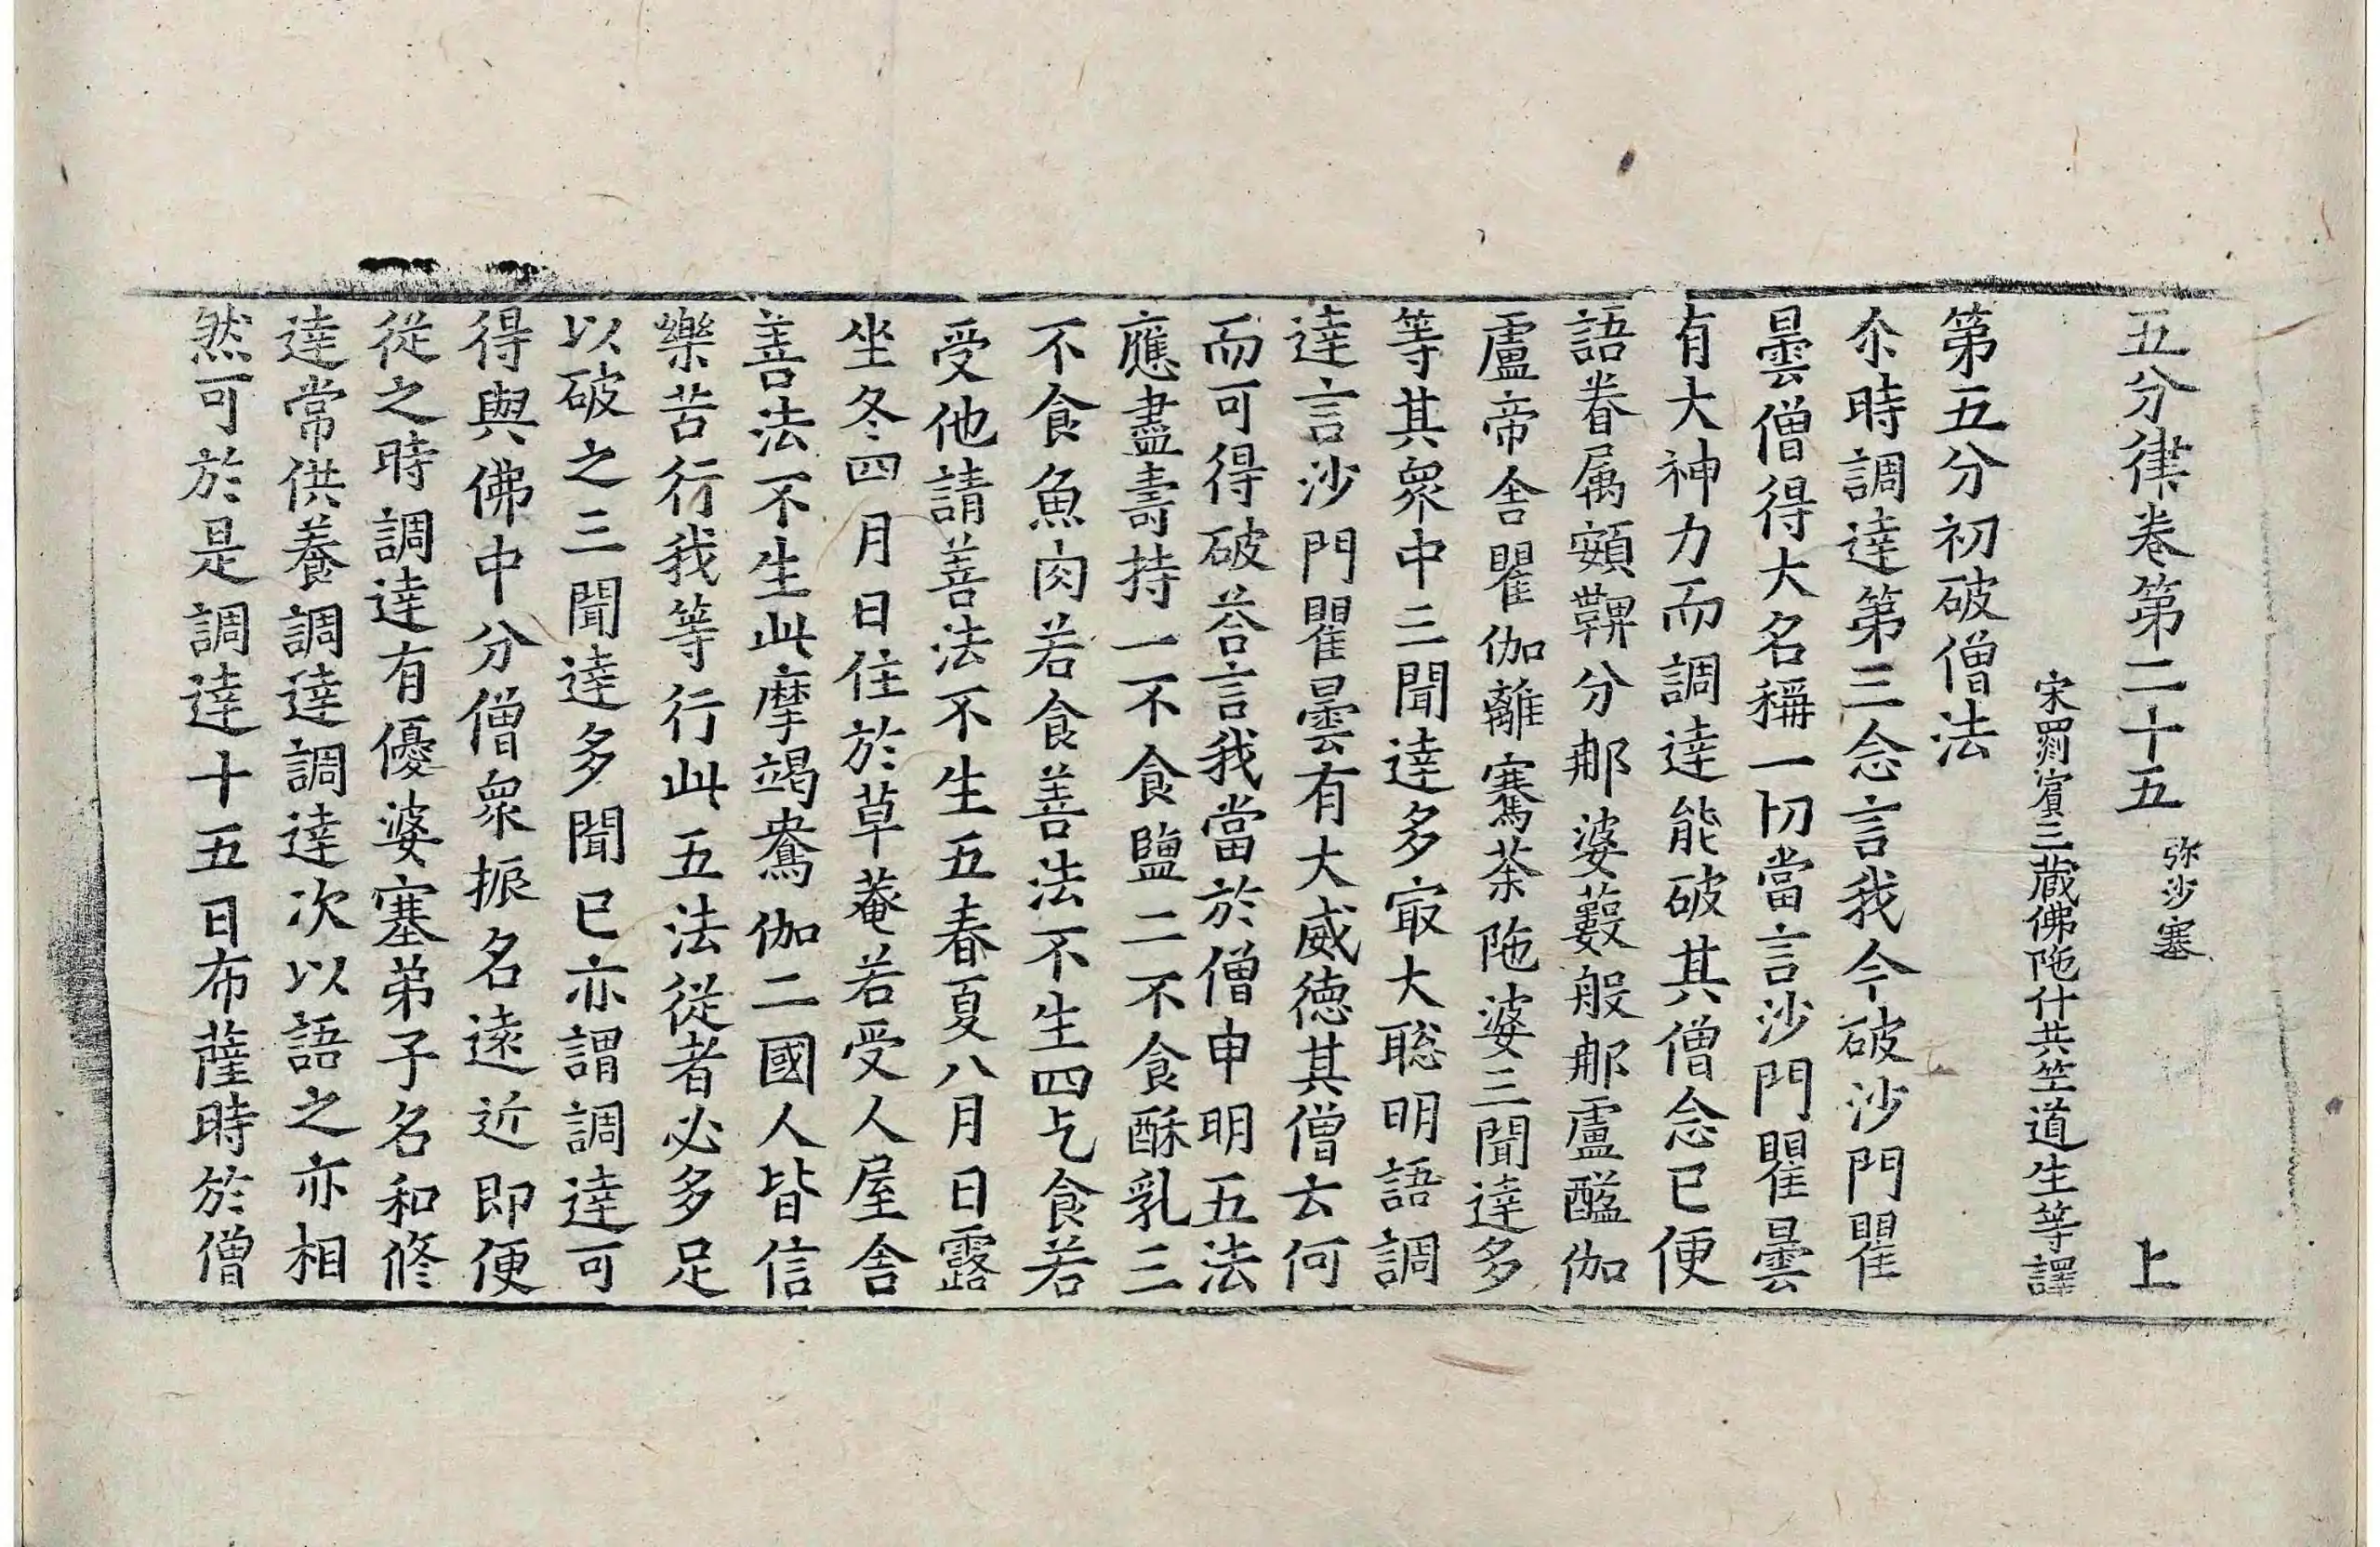 五分律卷第二十五 弥沙塞 上
宋罽賓三藏佛陁什共竺道生等譯
第五分初破僧法
尒時調達第三念言我今破沙門瞿
曇僧得大名稱一切當言沙門瞿曇
有大神力而調達能破其僧念已便
語眷属頞鞞分那婆藪般那盧醯伽
盧帝舍瞿伽離騫荼陁婆三聞達多
等其衆中三聞達多㝡大聡明語調
達言沙門瞿曇有大威德其僧云何
而可得破荅言我當於僧申明五法
應盡壽持一不食鹽二不食酥乳三
不食魚肉若食善法不生四乞食若
受他請善法不生五春夏八月日露
坐冬四月日住於草菴若受人屋舍
善法不生此摩竭鴦伽二國人皆信
樂苦行我等行此五法従者必多足
以破之三聞達多聞已亦謂調達可
得與佛中分僧衆振名遠近即便
従之時調達有優婆塞弟子名和修
達常供養調達調達次以語之亦相
然可於是調達十五日布薩時於僧